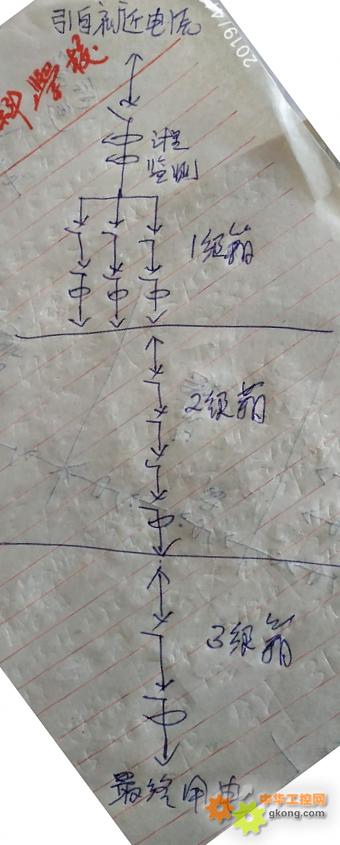 引自就近电源
2019/4
学校
计量
监测
1级箱
2级箱
3级箱
最终用电
中华工控网
gkong.com